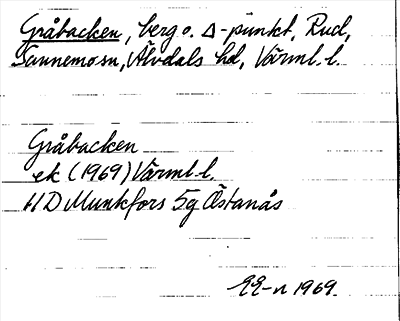 Gråbacken, berg o. Δ-punkt, Rud,
Sunnemo sn, Älvdals hd, Värml. l.
Gråbacken
ek (1969) Värml. l.
11D Munkfors 5g Östanås
1969.